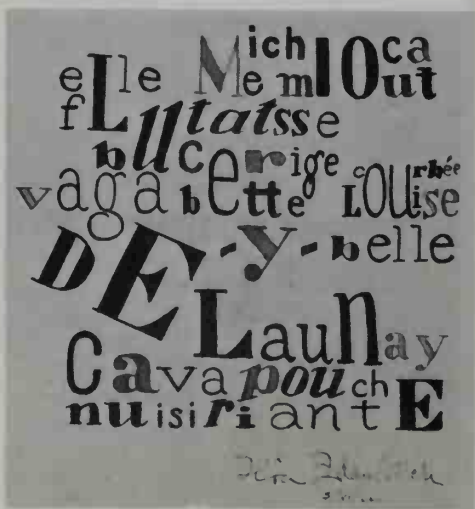 eLle MichIOca
MemIOut
fLUtatsse
bUCerige cOUrbée
vagabette LOUise
DE-y-belle
DELauNay
CavapouchE
nuisiriantE